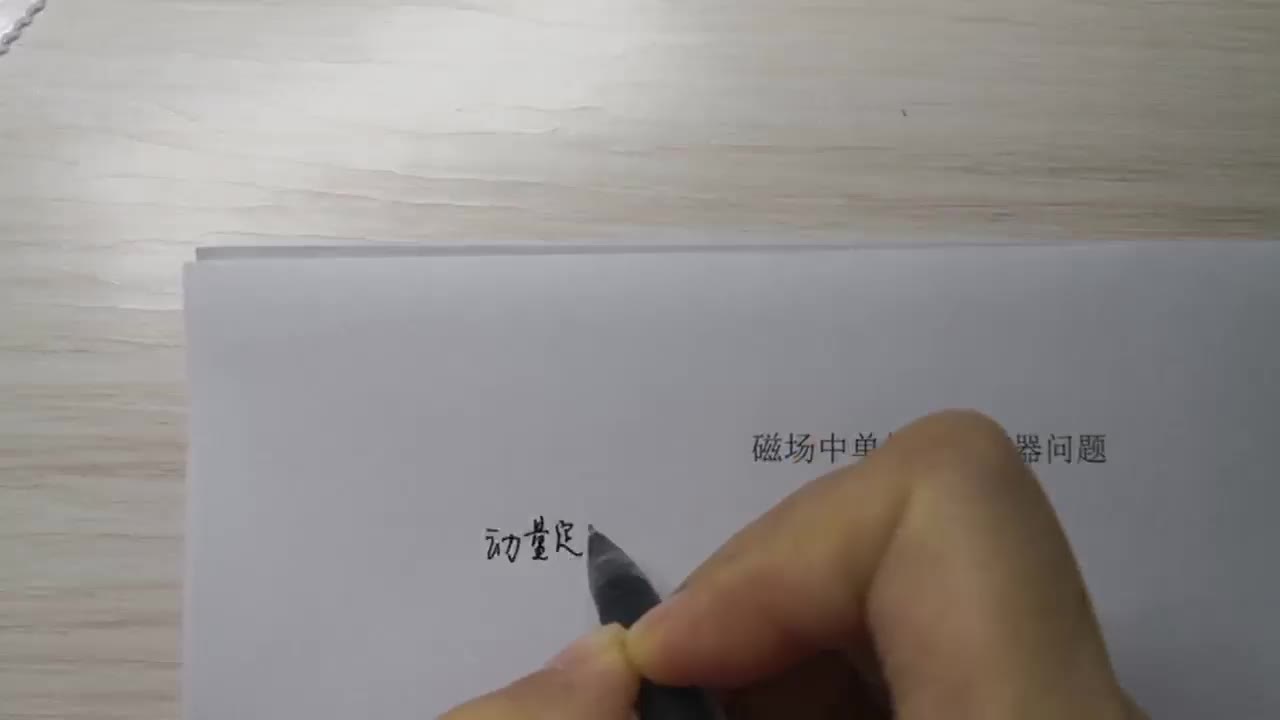 磁场中单 器问题
动量定